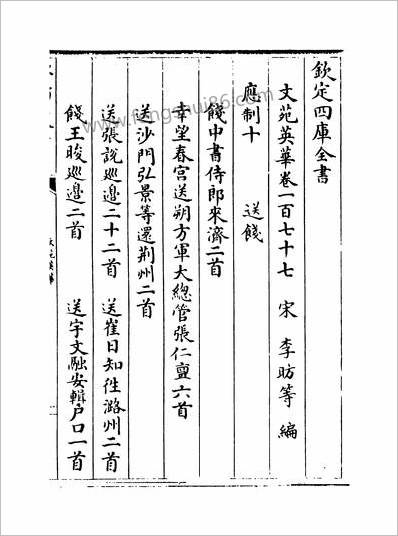 欽定四庫全書
文苑英華卷一百七十七　宋　李昉等　編
應制十　送餞
餞中書侍郎來濟二首
幸望春宮送朔方軍大總管張仁亶六首
送沙門弘景等還荆州二首
送張說廵邊二十二首　送崔日知徃潞州二首
餞王晙廵邊二首　送宇文融安輯户口一首
文苑英華
一
www.fengshui86.com